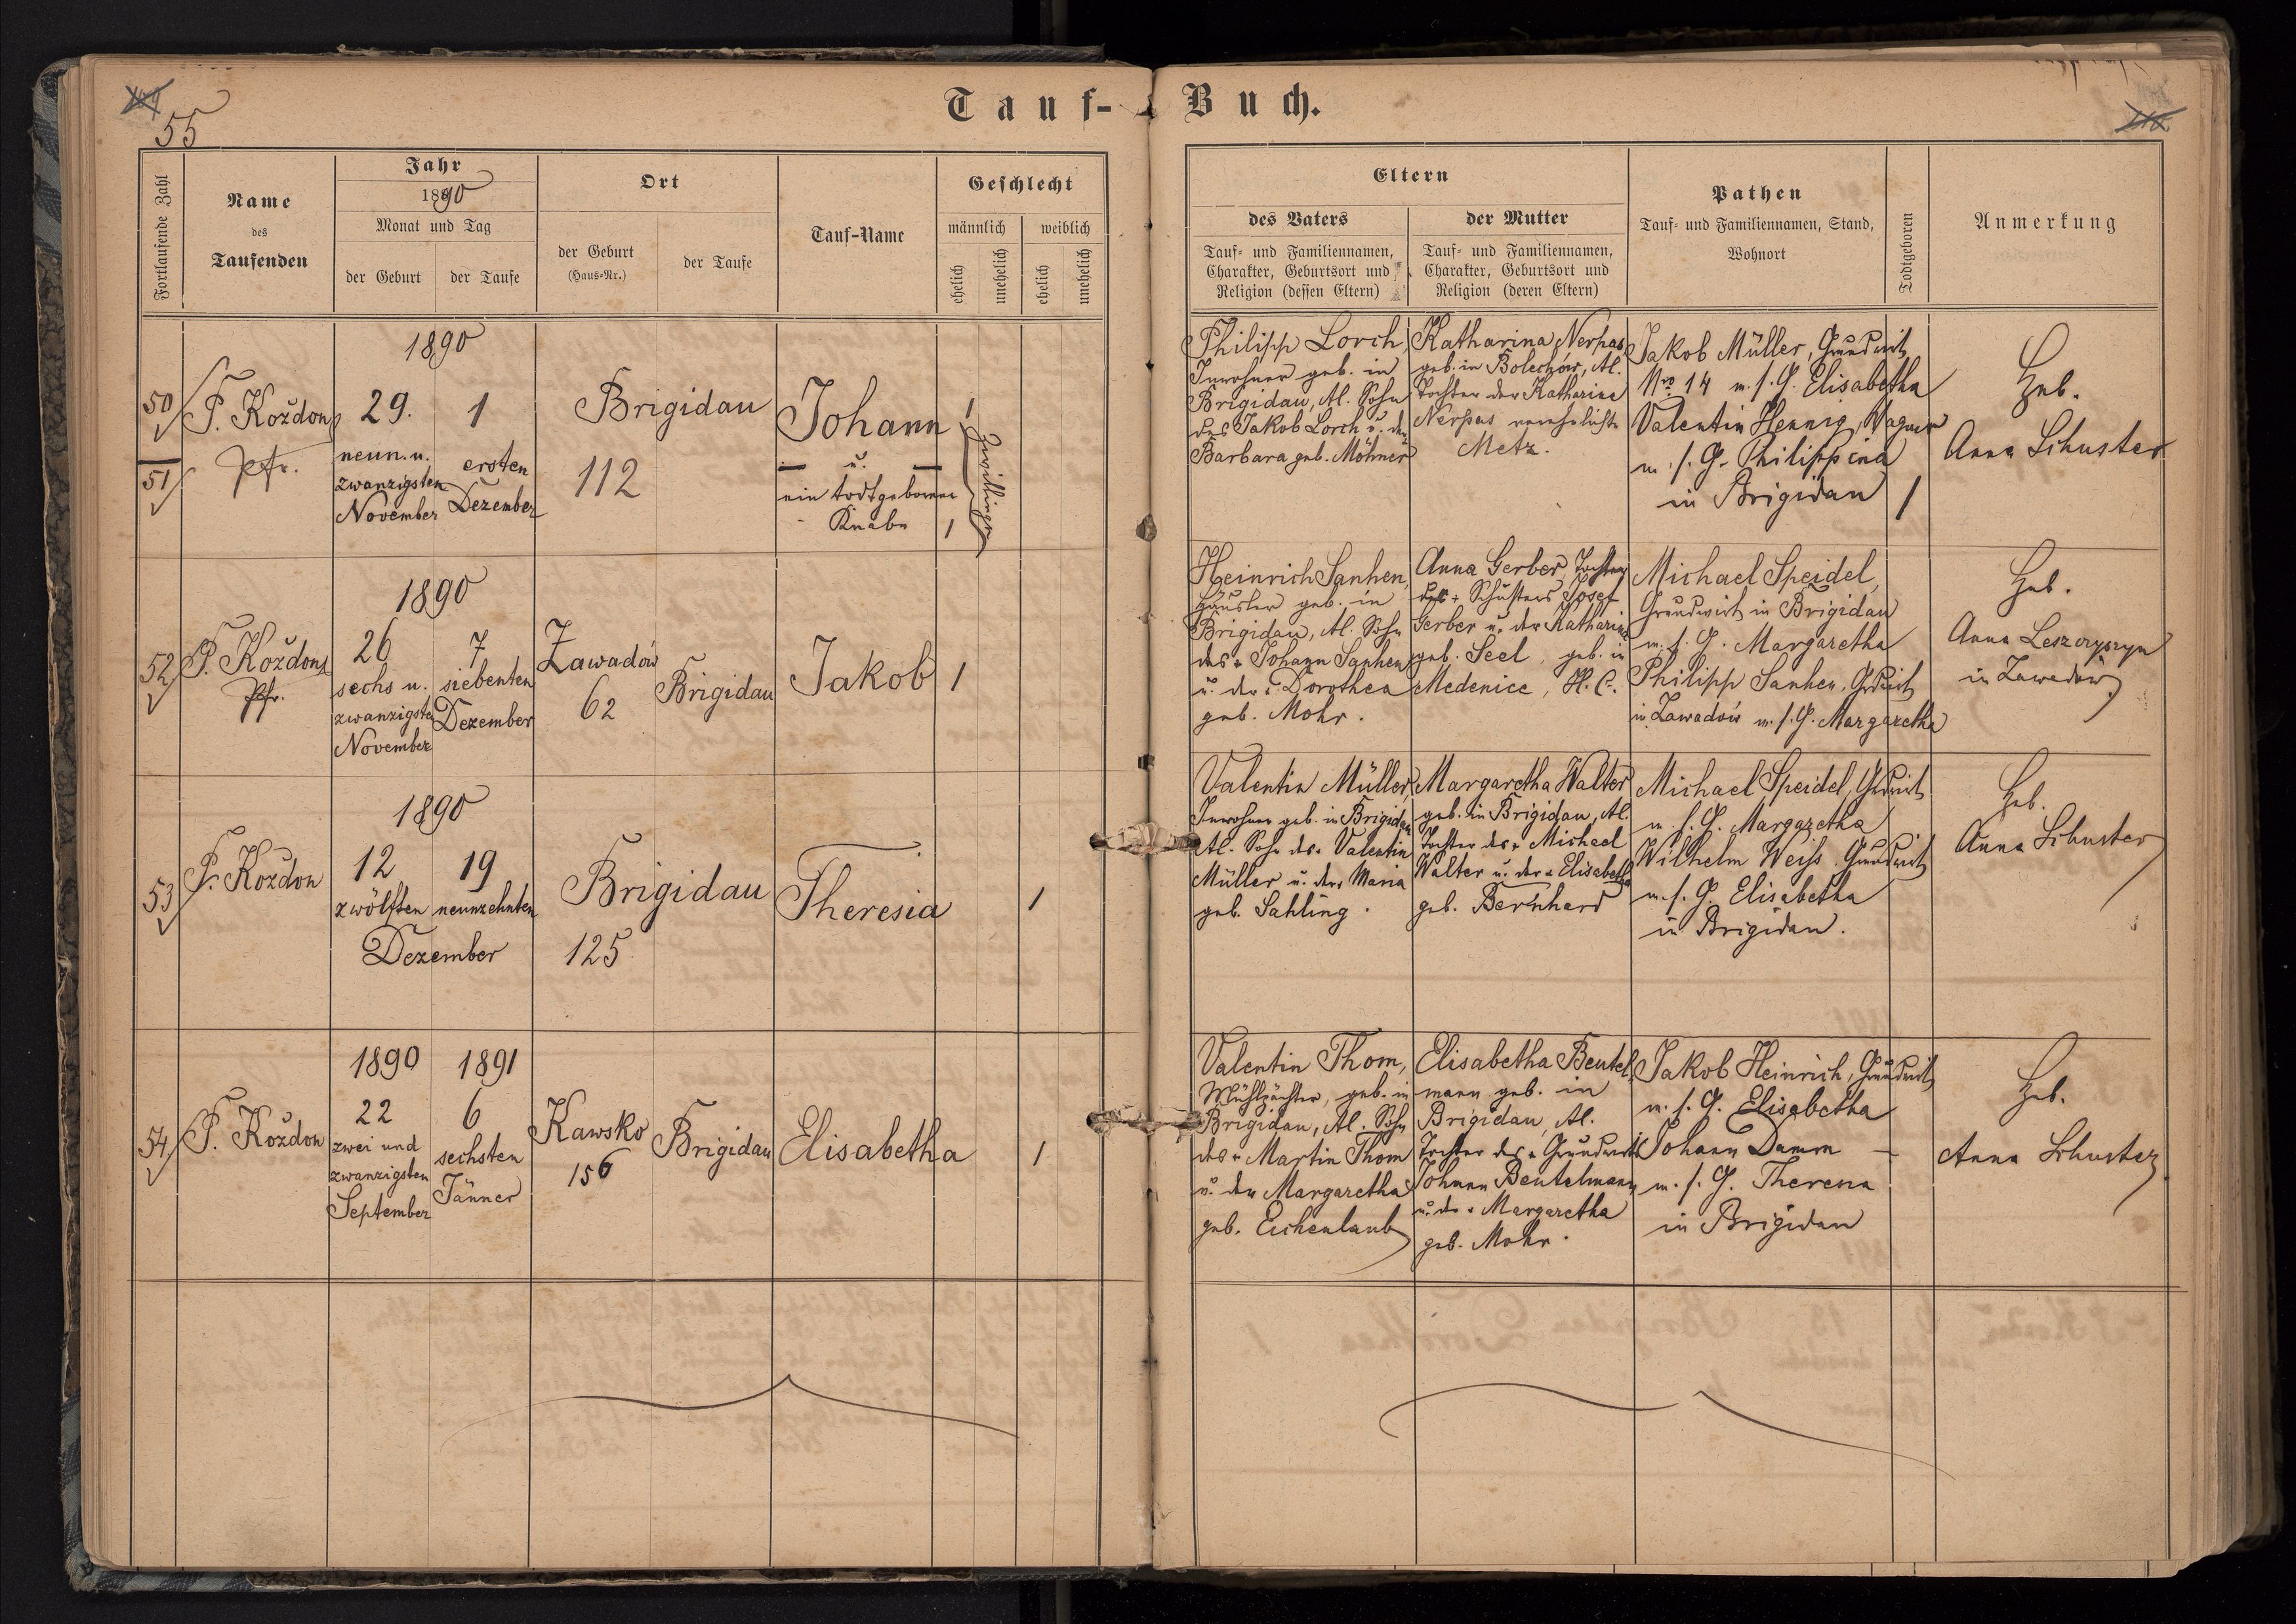 Tauf-Buch.
55
Fortlaufende Zahl
Name
des
Taufenden
Jahr
1890
Monat und Tag
der Geburt
der Taufe
Ort
der Geburt
(Haus-Nr.)
der Taufe
Tauf-Name
Geschlecht
männlich
weiblich
ehelich
unehelich
ehelich
unehelich
Eltern
des Vaters
Tauf- und Familiennamen,
Charakter, Geburtsort und
Religion (dessen Eltern)
der Mutter
Tauf- und Familiennamen,
Charakter, Geburtsort und
Religion (deren Eltern)
Pathen
Tauf- und Familiennamen, Stand,
Wohnort
Todtgeboren
Anmerkung
50
51
P. Koždon
Pfr.
1890
29.
neun. u.
zwanzigsten
November
1
ersten
Dezember
Brigidau
112
Johann
u.
ein todtgeborener
Knabe
1
1
Zwillinge
Philipp Lorch,
Inwohner geb. in
Brigidau, Al. Sohn
des Jakob Lorch u. der
Barbara geb. Möhner
Katharina Nerpas
geb. in Bolechów, Al.
Tochter der Katharina
Nerpas verehelichte
Metz.
Jakob Müller, Grundwirt
Nro 14 m. s. G. Elisabetha
Valentin Hennig, Wagner
m. s. G. Philippina
in Brigidau
1
Heb.
Anna Schuster
52
P. Koždon
Pfr.
1890
26
sechs u.
zwanzigsten
November
7
siebenten
Dezember
Zawadów
62
Brigidau
Jakob
1
Heinrich Sanhen,
Häusler geb. in
Brigidau, Al. Sohn
des + Johann Sanhen
u. der + Dorothea
geb. Mohr.
Anna Gerber Tochter
des + Schusters Josef
Gerber u. der Katharina
geb. Seel, geb. in
Medenice, H. C.
Michael Speidel,
Grundwirt in Brigidau
m. s. G. Margaretha
Philipp Sanhen, Grdwirt
in Zawadów m. s. G. Margaretha
Heb.
Anna Leszczyszyn
in Zawadów
53
P. Koždon
1890
12
zwölften
19
neunzehnten
Dezember
Brigidau
125
Theresia
1
Valentin Müller,
Inwohner geb. in Brigidau
Al. Sohn des + Valentin
Müller u. der + Maria
geb. Sahling.
Margaretha Walter
geb. in Brigidau, Al.
Tochter des + Michael
Walter u. der + Elisabetha
geb. Bernhard
Michael Speidel, Grdwirt
m. s. G. Margaretha
Wilhelm Weiss Grundwirt
m. s. G. Elisabetha
in Brigidau.
Heb.
Anna Schuster
54
P. Koždon
1890
22
zwei und
zwanzigsten
September
1891
6
sechsten
Jänner
Kawsko
156
Brigidau
Elisabetha
1
Valentin Thom,
Mühlpächter, geb. in
Brigidau, Al. Sohn
des + Martin Thom
u. der Margaretha
geb. Eichenlaub
Elisabetha Beutel-
mann geb. in
Brigidau, Al.
Tochter des + Grundwirts
Johann Beutelmann
u. der + Margaretha
geb. Mohr.
Jakob Heinrich, Grundwirt
m. s. G. Elisabetha
Johann Damm
m. s. G. Theresia
in Brigidau
Heb.
Anna Schuster